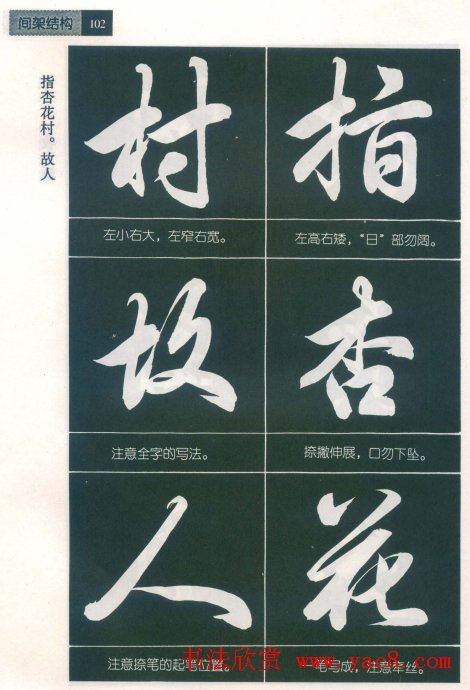 间架结构 102
指杏花村。故人
指
左高右矮，“日”部勿阔。
杏
捺撇伸展，口勿下坠。
花
笔写成，注意牵丝。
村
左小右大，左窄右宽。
故
注意全字的写法。
人
注意捺笔的起笔位置。
书法欣赏 www.yac8.com